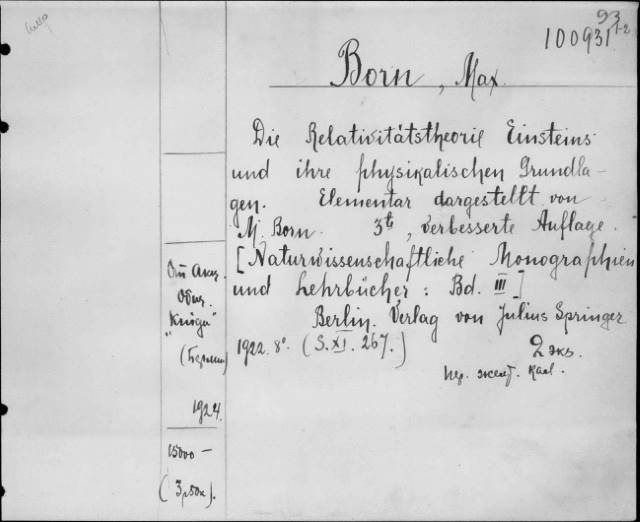 93
100931 1-2
Born, Max.
Die Relativitätstheorie Einsteins
und ihre physikalischen Grundla-
gen. Elementar dargestellt von
M. Born. 3te, verbesserte Auflage.
[Naturwissenschaftliche Monographien
und Lehrbücher: Bd. III]
Berlin. Verlag von Julius Springer
1922. 8°. (S. XI. 267.)
2 экз.
пер. желт. кал.
От Акц.
Общ.
"Книга"
(Берлин)
1924.
15000 —
(3р50к).